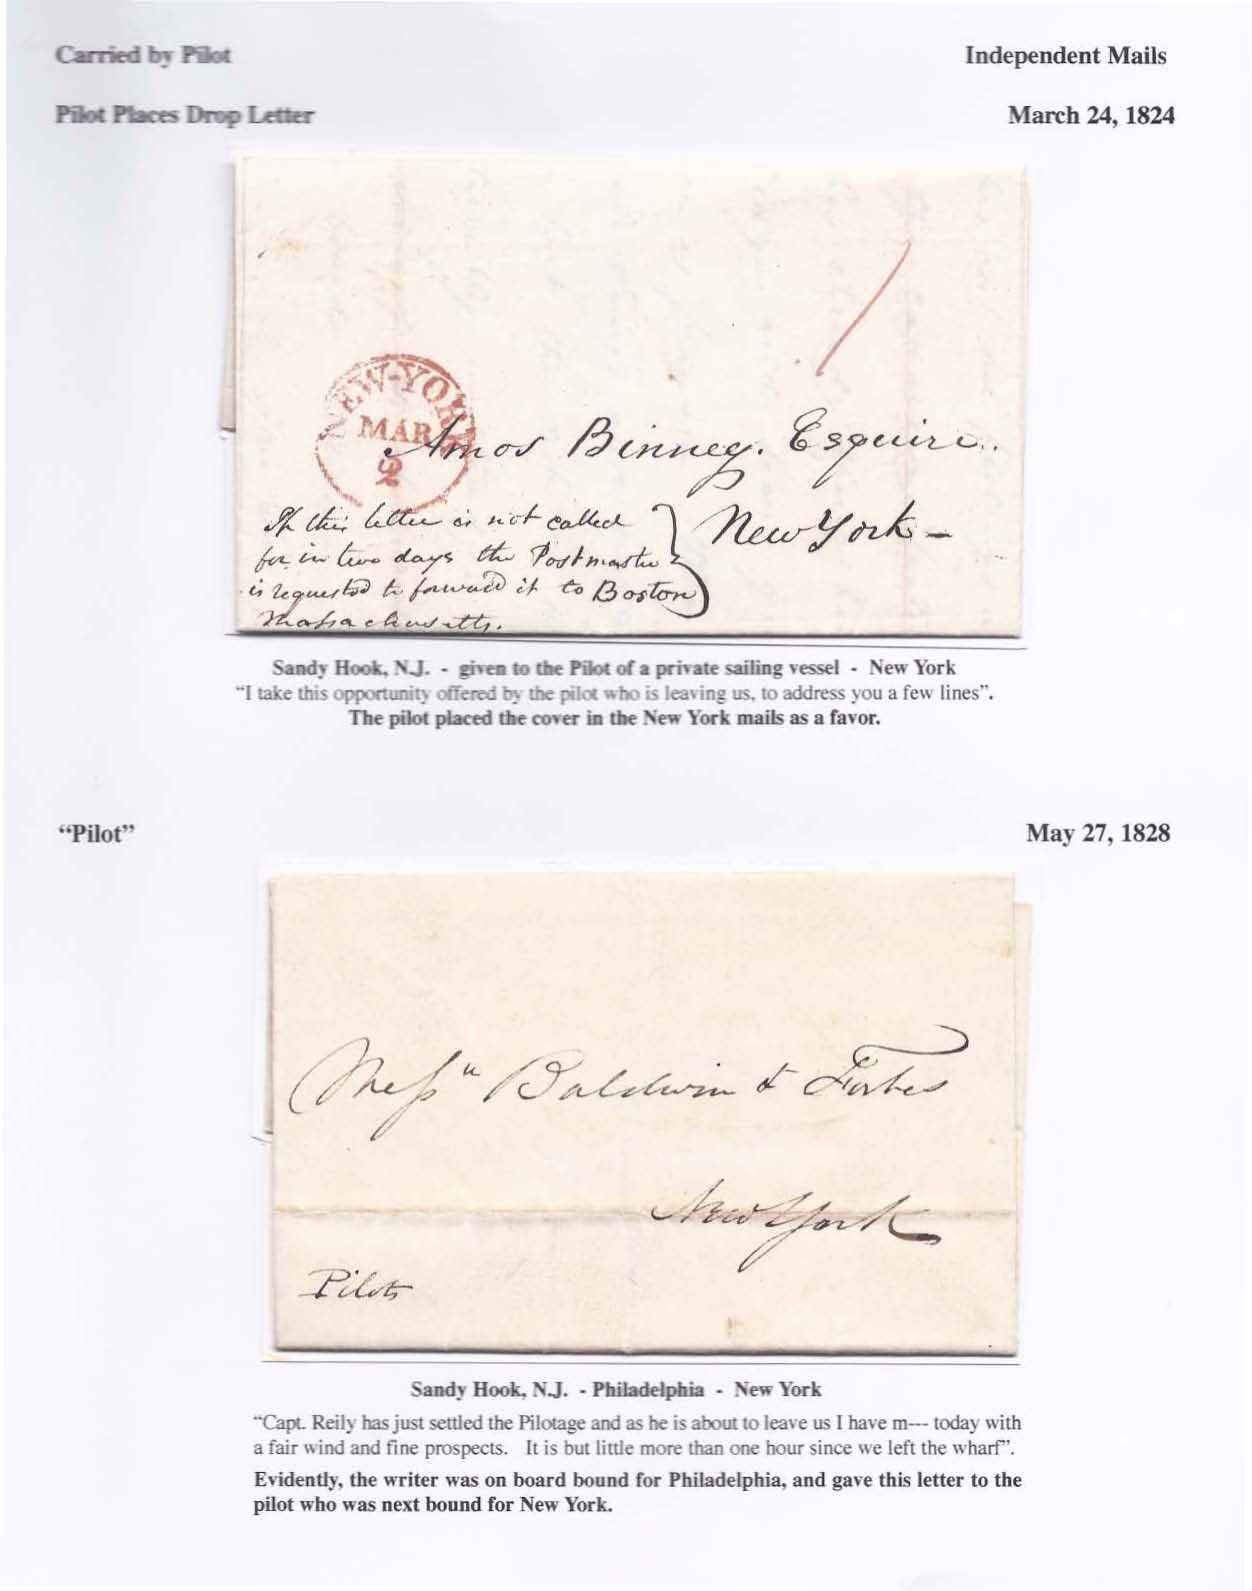 Carried by Pilot
Independent Mails
Pilot Places Drop Letter
March 24, 1824
1
NEW-YORK
MAR
Amos Binney. Esquire.
New York -
If this letter is not called
for in two days the Postmaster
is requested to forward it to Boston
Massachusetts.
Sandy Hook, N.J. - given to the Pilot of a private sailing vessel - New York
"I take this opportunity offered by the pilot who is leaving us, to address you a few lines".
The pilot placed the cover in the New York mails as a favor.
“Pilot”
May 27, 1828
Messrs Baldwin & Forbes
New York
Pilot
Sandy Hook, N.J. - Philadelphia - New York
"Capt. Reily has just settled the Pilotage and as he is about to leave us I have m--- today with
a fair wind and fine prospects. It is but little more than one hour since we left the wharf".
Evidently, the writer was on board bound for Philadelphia, and gave this letter to the
pilot who was next bound for New York.